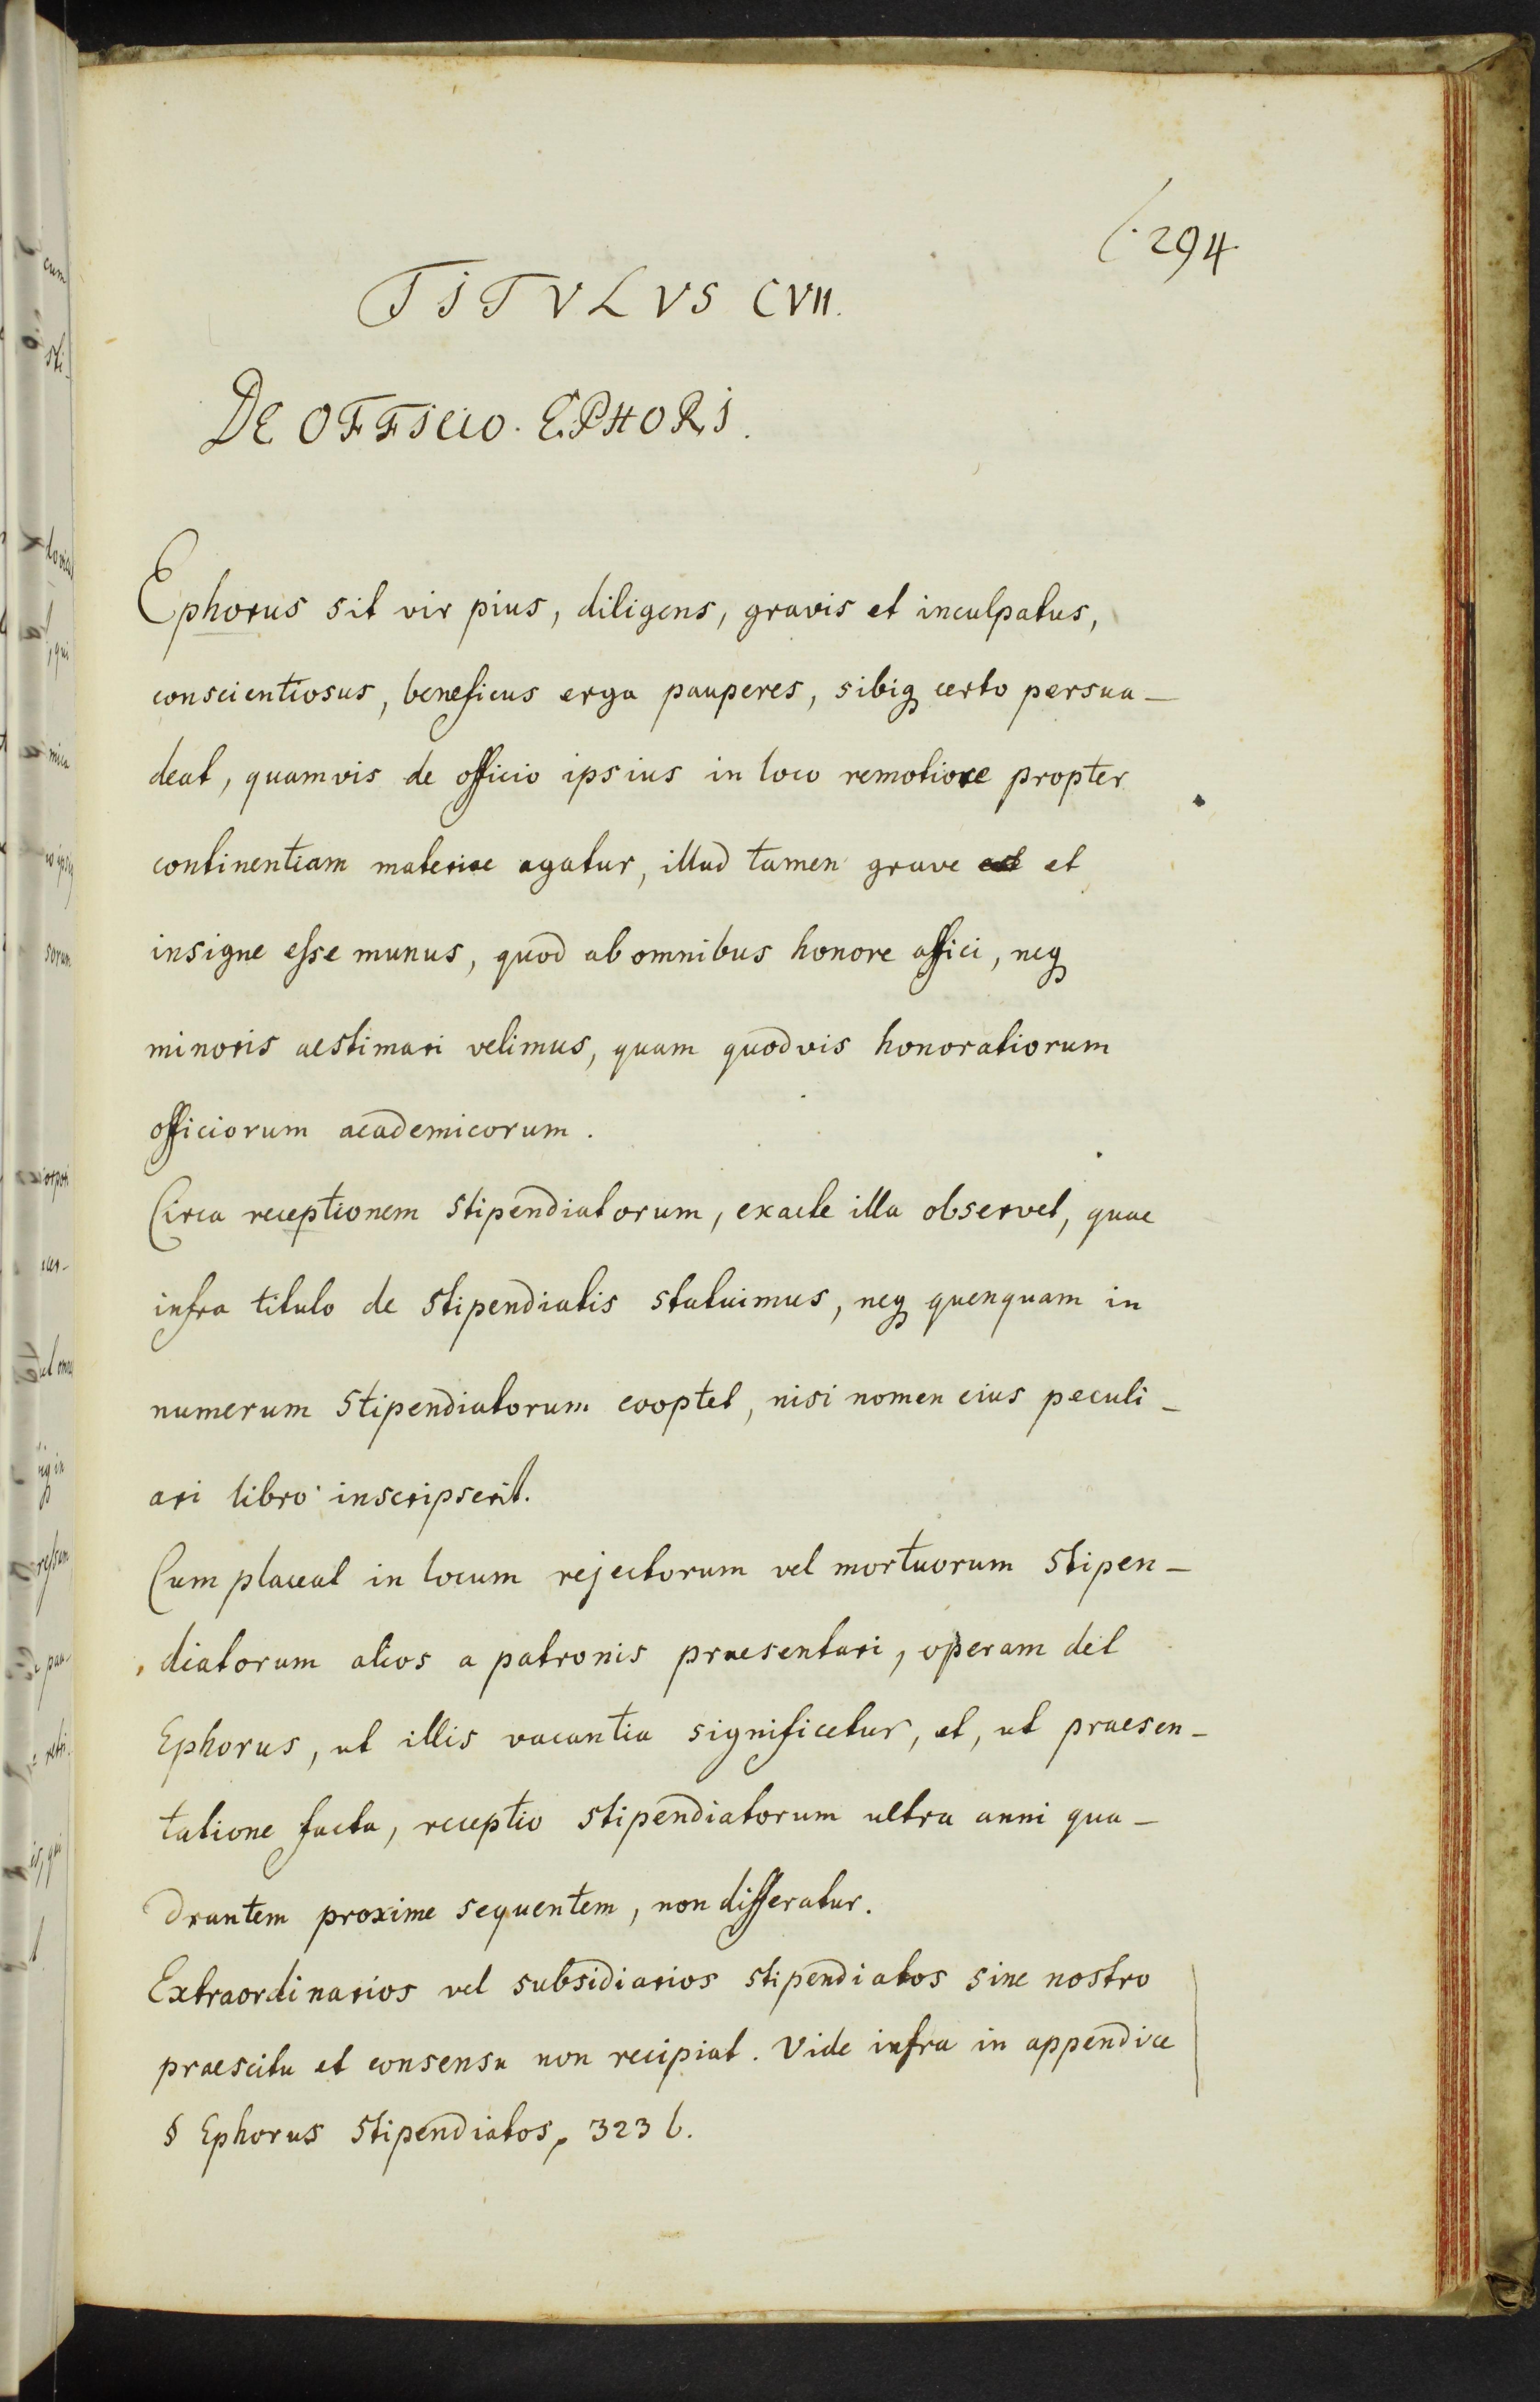 294
TITVLVS CVII.
DE OFFICIO EPHORI.
Ephorus sit vir pius, diligens, gravis et inculpatus,
conscientiosus, beneficus erga pauperes, sibiq certo persua-
deat, quamvis de officio ipsius in loco remotiore propter
continentiam materiae agatur, illud tamen grave et
insigne esse munus, quod ab omnibus honore affici, neq
minoris aestimari velimus, quam quodvis honoratiorum
officiorum academicorum.
Circa receptionem stipendiatorum, exacte illa observet, quae
infra titulo de stipendiatis statuimus, neq quenquam in
numerum stipendiatorum cooptet, nisi nomen eius peculi-
ari libro inscripserit.
Cum placeat in locum rejectorum vel mortuorum stipen-
diatorum alios a patronis praesentari, operam det
Ephorus, ut illis vacantia significetur, et, ut praesen-
tatione facta, receptio stipendiatorum ultra anni qua-
drantem proxime sequentem, non differatur.
Extraordinarios vel subsidiarios stipendiatos sine nostro
praescitu et consensu non recipiat. Vide infra in appendice
§ Ephorus stipendiatos, 323 b.